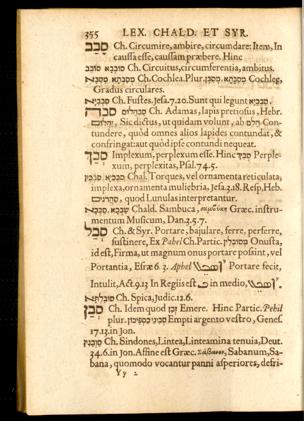 355 LEX. CHALD. ET SYR.
סבב Ch. Circumire, ambire, circumdare: Item, In
caussa esse, caussam præbere. Hinc
Ch. Circuitus, circumferentia, ambitus.
Ch. Cochlea. Plur. Cochleę,
Gradus circulares.
Ch. Fustes. Jesa. 7. 20. Sunt qui legunt
Ch. Adamas, lapis pretiosus, Hebr.
Sic dictus, ut quidam volunt, ab הלם Con-
tundere, quòd omnes alios lapides contundat, &
confringat: aut quòd ipse contundi nequeat.
סבך Implexum, perplexum esse. Hinc סביך Perple-
xum, perplexitas, Psal. 74. 5.
Chal. Torques, vel ornamenta reticulata,
implexa, ornamenta muliebria, Jesa. 3. 18. Resp. Heb.
quod Lunulas interpretantur.
Chald. Sambuca, Græc. instru-
mentum Musicum, Dan. 3. 5. 7.
סבל Ch. & Syr. Portare, bajulare, ferre, perferre,
sustinere, Ex Pahel Ch. Partic. Onusta,
id est, Firma, ut magnum onus portare possint, vel
Portantia, Esræ 6. 3. Aphel Portare fecit,
Intulit, Act. 9. 13 In Regiis est in medio,
Ch. Spica, Judic. 12. 6.
סבן Ch. Idem quod זבן Emere. Hinc Partic. Pehil
plur. Empti argento vestro, Genes.
17. 13. in Jon.
Ch. Sindones, Lintea, Linteamina tenuia, Deut.
34. 6. in Jon. Affine est Græc. Sabanum, Sa-
bana, quomodo vocantur panni asperiores, desri-
Yy 2